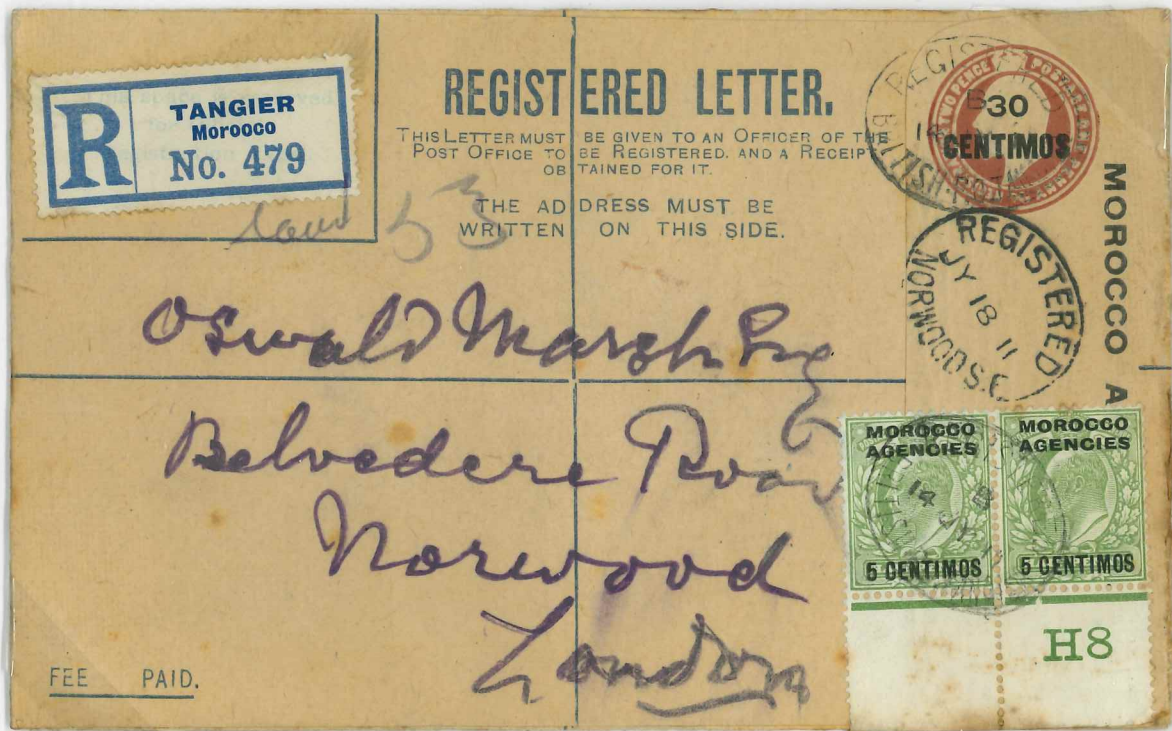 R
TANGIER
Morocco
No. 479
REGISTERED LETTER.
THIS LETTER MUST BE GIVEN TO AN OFFICER OF THE
POST OFFICE TO BE REGISTERED. AND A RECEIPT
OBTAINED FOR IT.
THE ADDRESS MUST BE
WRITTEN ON THIS SIDE.
53
30
CENTIMOS
REGISTERED
BRITISH P.O.
MOROCCO A
REGISTERED
JY 18 11
NORWOOD S.E.
Oswald Marsh Esq
Belvedere Road
Norwood
London
MOROCCO
AGENCIES
5 CENTIMOS
MOROCCO
AGENCIES
5 CENTIMOS
H8
FEE PAID.